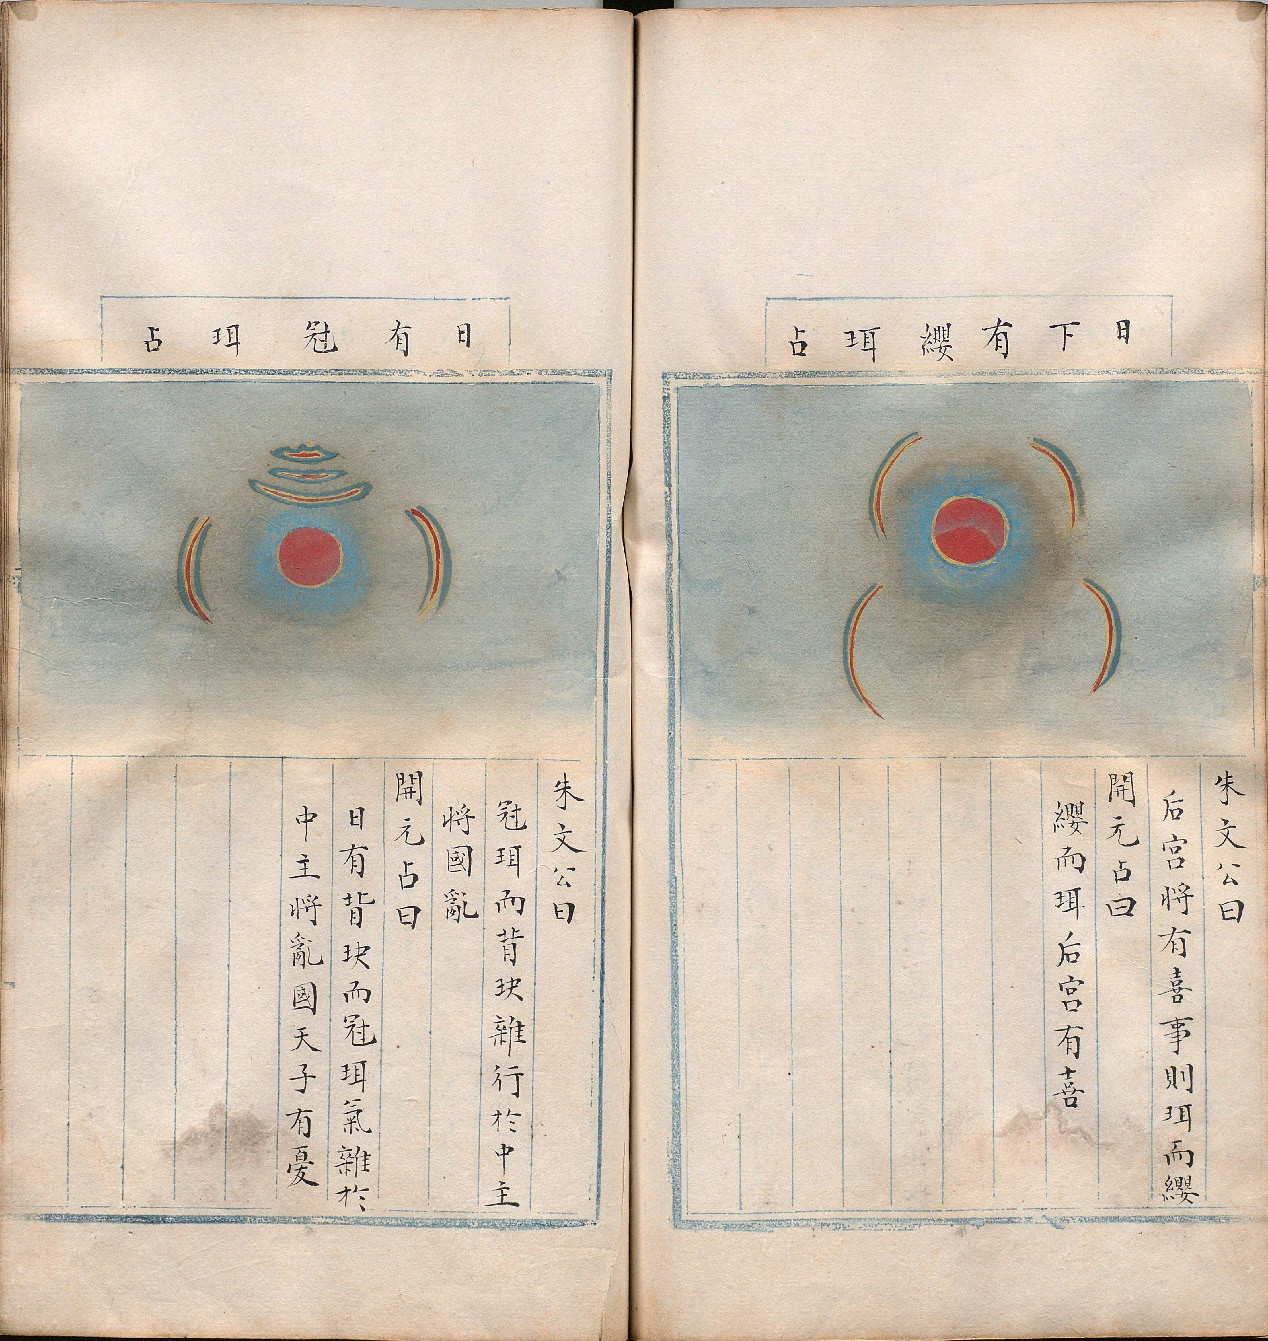 日下有纓珥占
朱文公曰
后宮將有喜事則珥而纓
開元占曰
纓而珥后宮有喜
日有冠珥占
朱文公曰
冠珥而背玦雜行於中主
將國亂
開元占曰
日有背玦而冠珥氣雜於
中主將亂國天子有憂